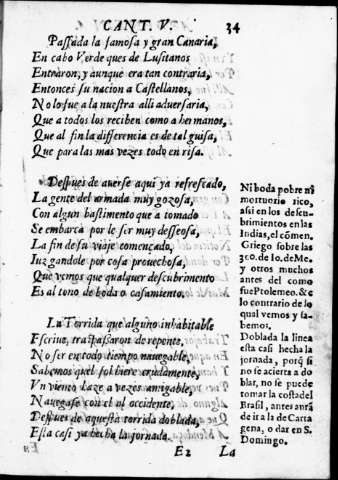 CANT. V. 34
Passada la famosa y gran Canaria,
En cabo Verde ques de Lusitanos
Entraron, y aunque era tan contraria,
Entonces su nacion a Castellanos,
No lo fue a la nuestra alli aduersaria,
Que a todos los reciben como a hermanos,
Que al fin la differencia es de tal guisa,
Que para las mas vezes todo en risa.
Despues de auerse aqui ya refrescado,
La gente del armada muy gozosa,
Con algun bastimento que a tomado
Se embarca por le ser muy desseosa,
La fin de su viaje començado,
Iuzgandole por cosa prouechosa,
Que vemos que qualquer descubrimento
Es al tono de boda o casamiento.
La Torrida que alguno inhabitable
Escriue, traspassaron de repente,
No ser en todo tiempo nauegable,
Sabemos quel sol hiere
Vn viento haze a vezes amigable,
Nauegase con el al occidente,
Despues de aquesta torrida doblada,
Esta casi ya hecha la jornada.
Ni boda pobre ni
mortuorio rico,
assi en los descu-
brimientos en las
Indias, es cõmen.
Griego sobre las
300. de Io. de Me.
y otros muchos
antes del como
fue Ptolemeo. &c
lo contrario de lo
qual vemos y sa-
bemos.
Doblada la linea
esta casi hecha la
jornada, porq̃ si
no se acierta a do
blar, no se puede
tomar la costa del
Brasil, antes aurã
de ir a la de Carta
gena, o dar en S.
Domingo.
E2 La